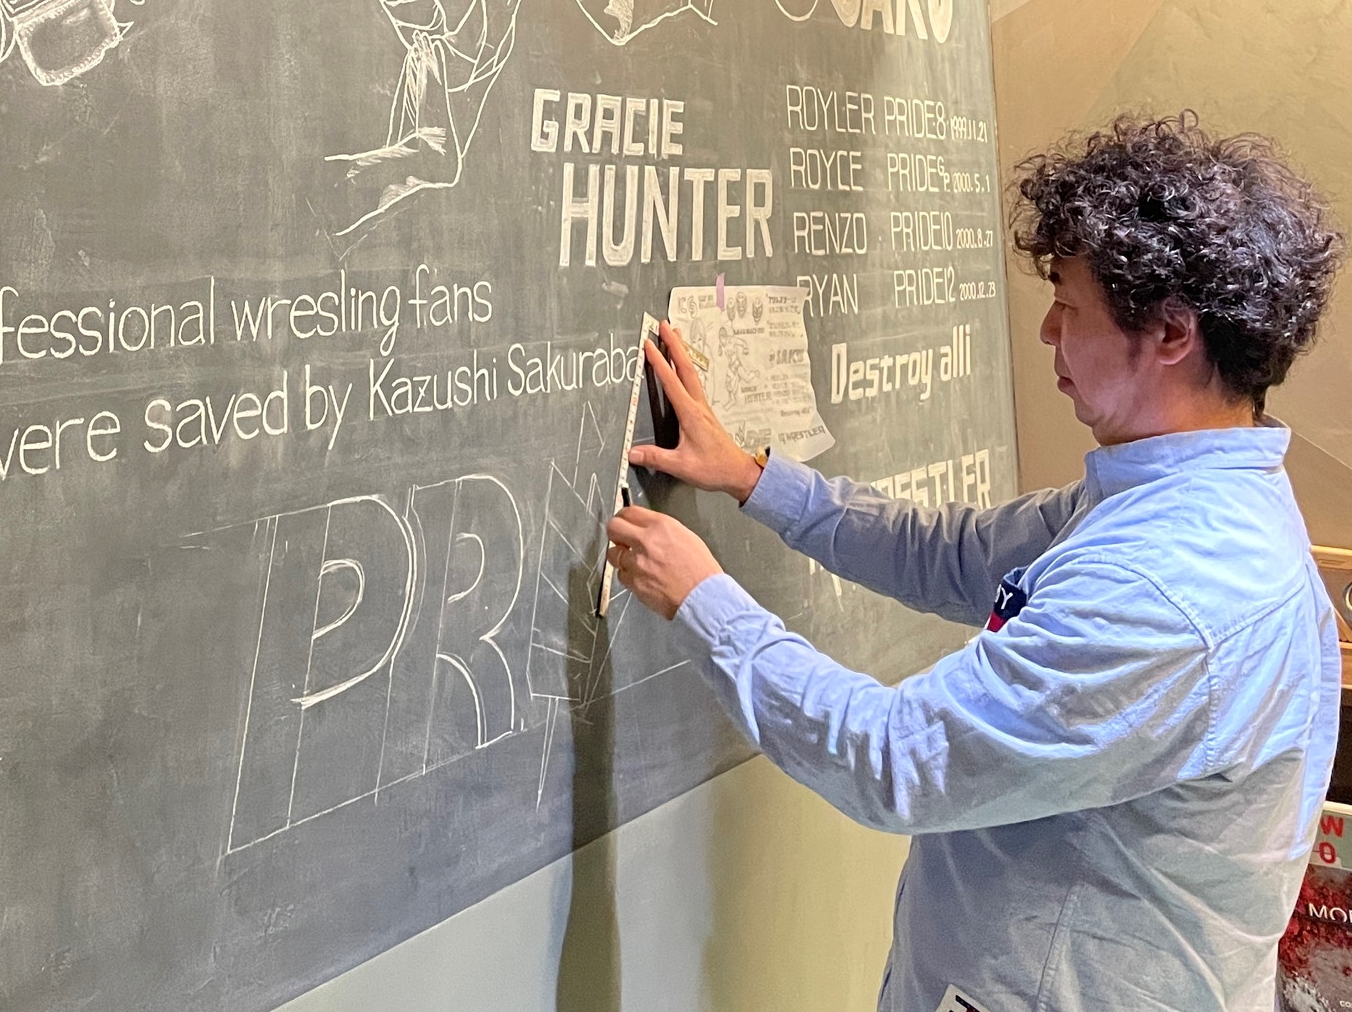 SAKU
GRACIE
HUNTER
ROYLER PRIDE8 1999.11.21
ROYCE PRIDE G.P. 2000.5.1
RENZO PRIDE10 2000.8.27
RYAN PRIDE12 2000.12.23
fessional wresling fans
were saved by Kazushi Sakuraba
Destroy all!
WRESTLER
PR
IQ WRESTLER
W
O
MO